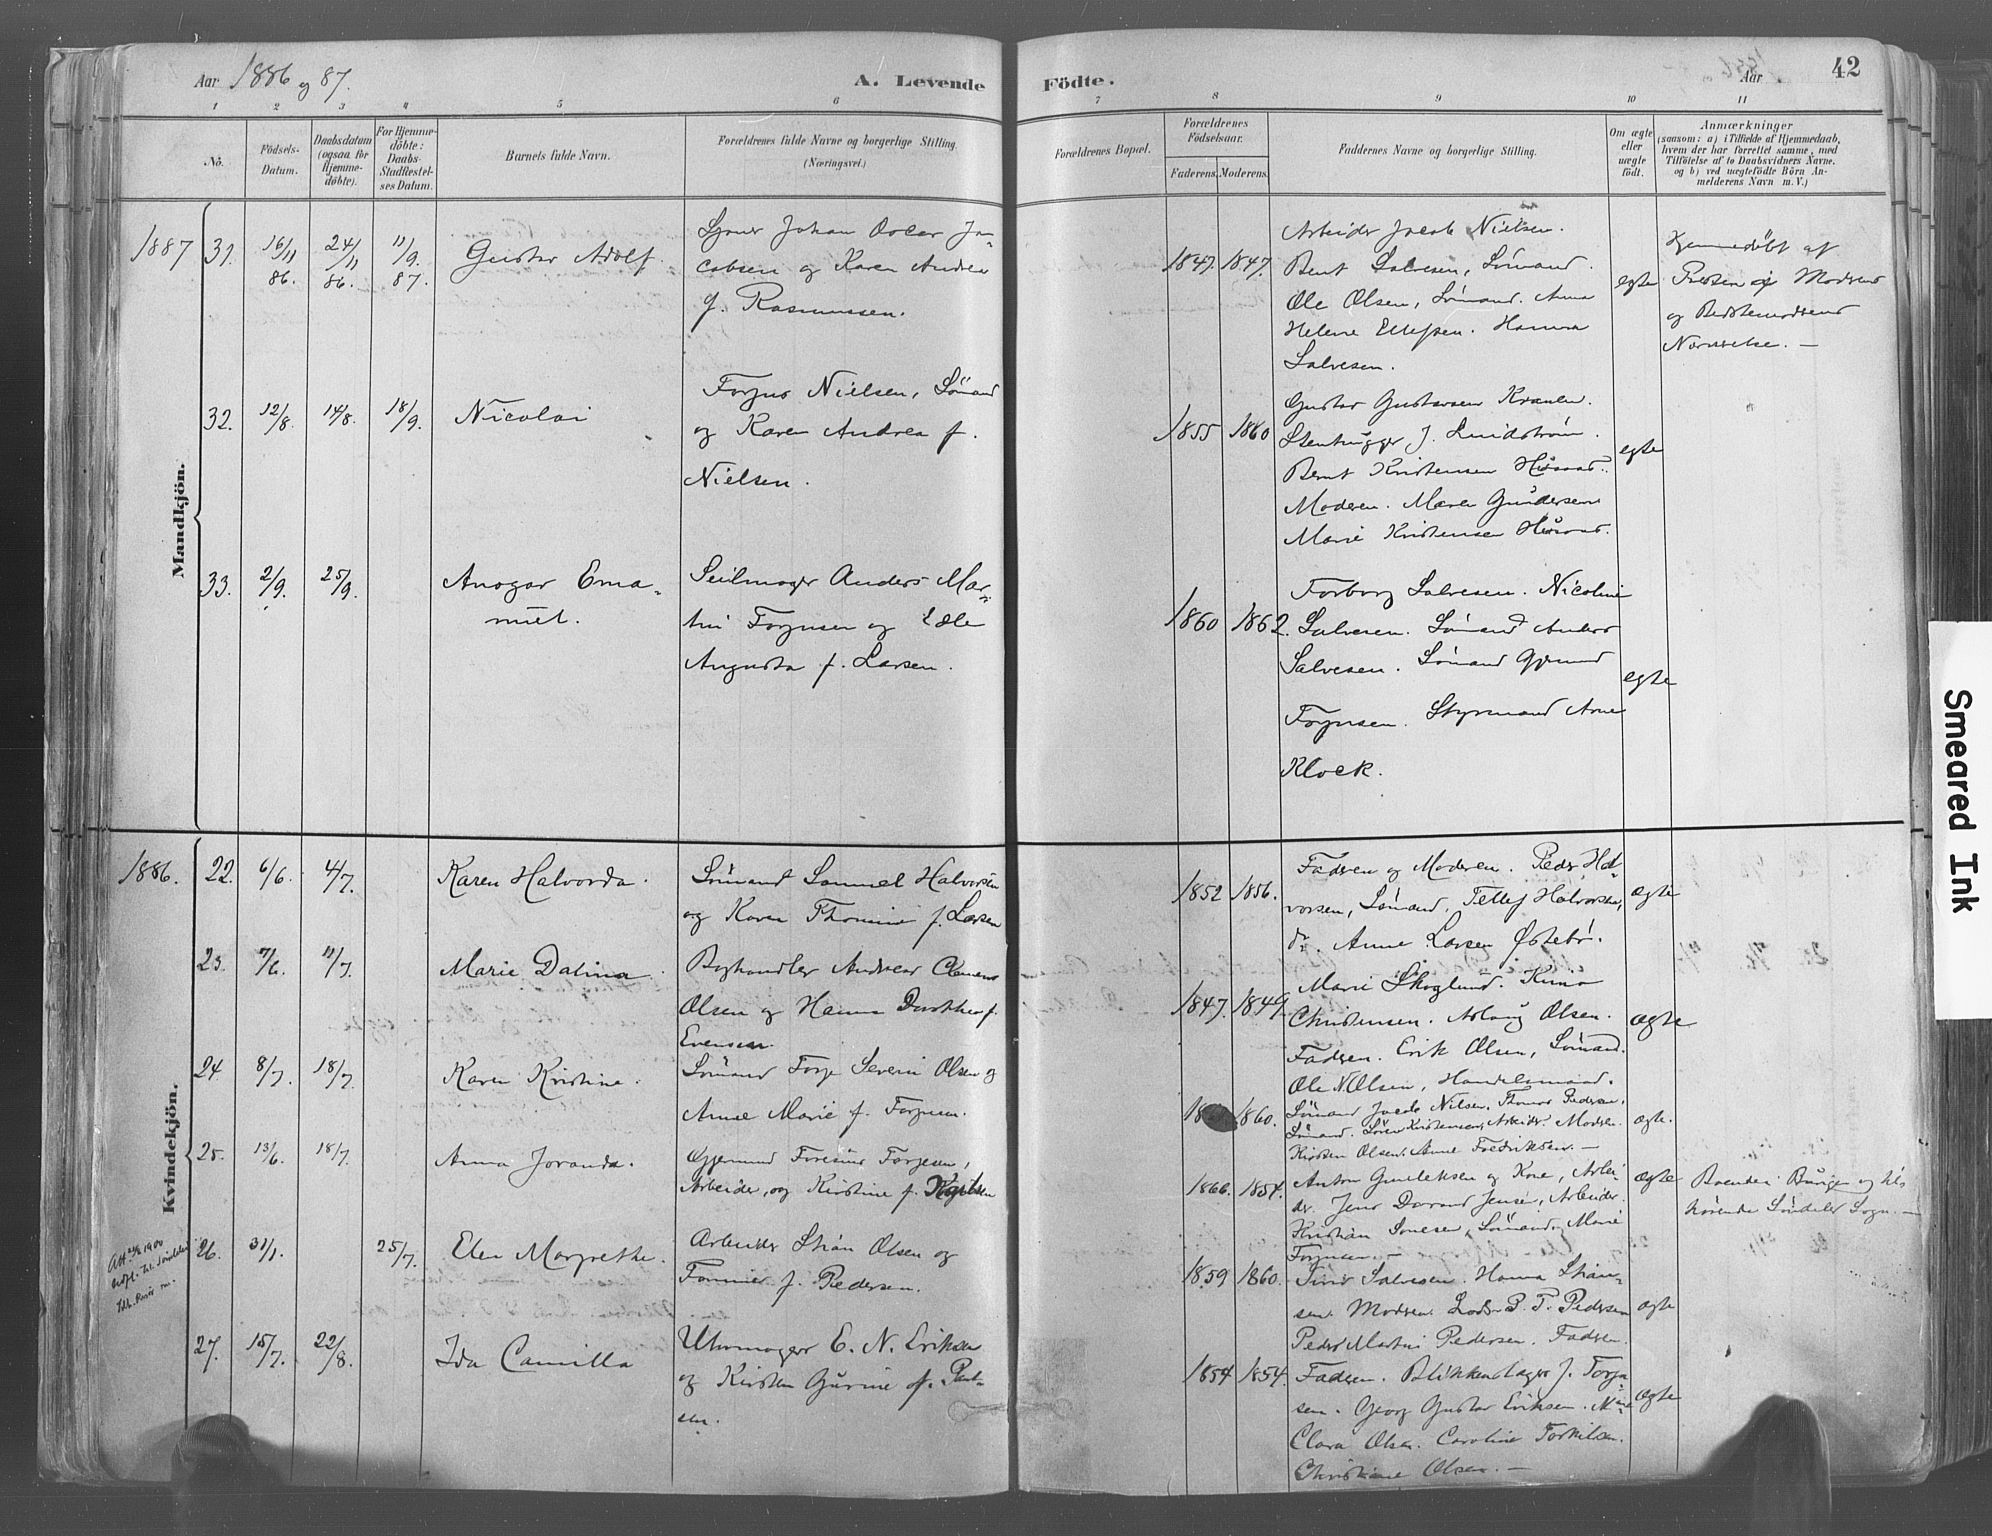 Aar 1886 og 87.
A. Levende Födte.
Aar
42
1 2 3 4 5 6 7 8 9 10 11
No.
Födsels-
Datum.
Daabsdatum
(ogsaa for
Hjemme-
döbte).
For Hjemme-
döbte:
Daabs-
Stadfæstel-
ses Datum.
Barnets fulde Navn.
Forældrenes fulde Navne og borgerlige Stilling.
(Næringsvei.)
Forældrenes Bopæl.
Forældrenes
Födselsaar.
Faderens. Moderens.
Faddernes Navne og borgerlige Stilling.
Om ægte
eller
uægte
födt.
Anmærkninger
(saasom: a) i Tilfælde af Hjemmedaab,
hvem der har forrettet samme, med
Tilföielse af to Daabsvidners Navne.
og b) ved uægtefödte Börn An-
melderens Navn m. V.)
Mandkjön.
1887 31. 16/11 86. 24/11 86. 11/9. 87.
Gustav Adolf.
Johan Oscar Ja-
cobsen og Karen Andrea
f. Rasmussen.
1847. 1847.
Arbeider Jacob Nielsen.
Bernt Salvesen, Sömand.
Ole Olsen, Sömand. Anna
Helene Ellefsen. Hanna
Salvesen.
egte
Hjemmedöbt af
Presten i Moderens
og Bedstemoderens
Nærværelse. —
32. 12/8. 14/8. 18/9.
Nicolai
Torjus Nielsen, Sömand
og Karen Andrea f.
Nielsen.
1855 1860
Gustav Gustavsen
Stenhugger J. Lundström.
Bernt Kristensen
Moderen. Maren Gundersen
Marie Kristensen
egte
33. 2/9. 25/9.
Ansgar Ema-
nuel.
Seilmager Anders Mar-
tin Torjusen og Edle
Augusta f. Larsen.
1860 1862.
Torborg Salvesen. Nicoline
Salvesen. Sömand Anders
Salvesen. Sömand Gjerund
Torjusen. Styrmand Arne
Klock.
egte
Kvindekjön.
1886. 22. 6/6. 4/7.
Karen Halvorda.
Sömand Samuel Halvorsen
og Karen Thomine f. Larsen
1852 1856.
Faderen og Moderen. Peder Hal-
vorsen, Sömand. Tellef Halvorsen,
do. Anne Larsen Östebö.
ægte
23. 7/6. 11/7.
Marie Dalina.
Boghandler Andreas Clemens
Olsen og Hanna Dorthea f.
Evensen.
1847. 1849.
Marie Skoglund.
Christensen. Aslaug Olsen.
Faderen. Erik Olsen, Sömand.
Ole N. Olsen, Handelsmand.
ægte
24 8/7. 18/7.
Karen Kristine.
Sömand Torje Severin Olsen og
Anne Marie f. Torjusen.
1860.
Sömand Jacob Nilsen, Thomas Pedersen,
Sömand. Sören Kristensen, Arbeider. Moderen.
Kirsten Olsen. Anne Fredriksen. —
ægte.
25. 13/6. 18/7.
Anna Joranda.
Gjermund Torjesen,
Arbeider, og Kirstine f.
1866. 1854.
Anton Gundersen og Kone, Arbei-
der. Jens Jensen, Arbeider.
Kristian Sömand, Marie
Torjusen. —
ægte
Boende i og til-
hörende Söndeled Sogn. —
26. 31/1. 25/7.
Elen Margrethe.
Arbeider Olsen og
f. Pedersen.
1859 1860.
Salvesen. Hanna
sen. Moderen. Lods P. T. Pedersen
Peder Martin Pedersen. Faderen.
ægte
27. 15/7. 22/8.
Ida Camilla
Uhrmager E. N. Eriksen
og Kirsten Gurine f.
sen.
1854 1854.
Faderen. Blikkenslager J. Torja
sen. Georg Gustav Eriksen.
Clara Olsen. Caroline Torkilsen.
Christiane Olsen. —
ægte
Smeared Ink